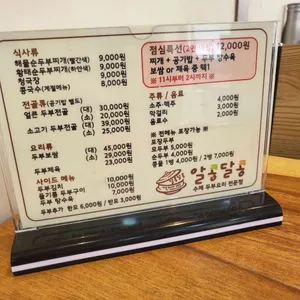 식사류
해물순두부찌개(빨간색) 9,000원
황태순두부찌개(하얀색) 9,000원
청국장 9,000원
콩국수(계절메뉴) 8,000원
전골류 (공기밥 별도)
얼큰 두부전골 (대) 30,000원
(소) 20,000원
소고기 두부전골 (대) 39,000원
(소) 25,000원
요리류 (대) 45,000원
두부보쌈 (소) 29,000원
두부제육 23,000원
사이드 메뉴
두부김치 10,000원
들기름 두부구이 10,000원
두부 탕수육 7,000원
두부추가 한모 6,000원 / 반모 3,000원
점심특선(2인 12,000원
찌개 + 공기밥 + 두부탕수육
보쌈 or 제육 중 택1
※ 11시부터 2시까지 ※
주류 / 음료
소주·맥주 4,000원
막걸리 3,000원
음료수 2,000원
※ 전메뉴 포장가능 ※
포장두부
모두부 5,000원
순두부 4,000원
콩물 1병 4,000원 / 2병 7,000원
알콩달콩
수제 두부요리 전문점